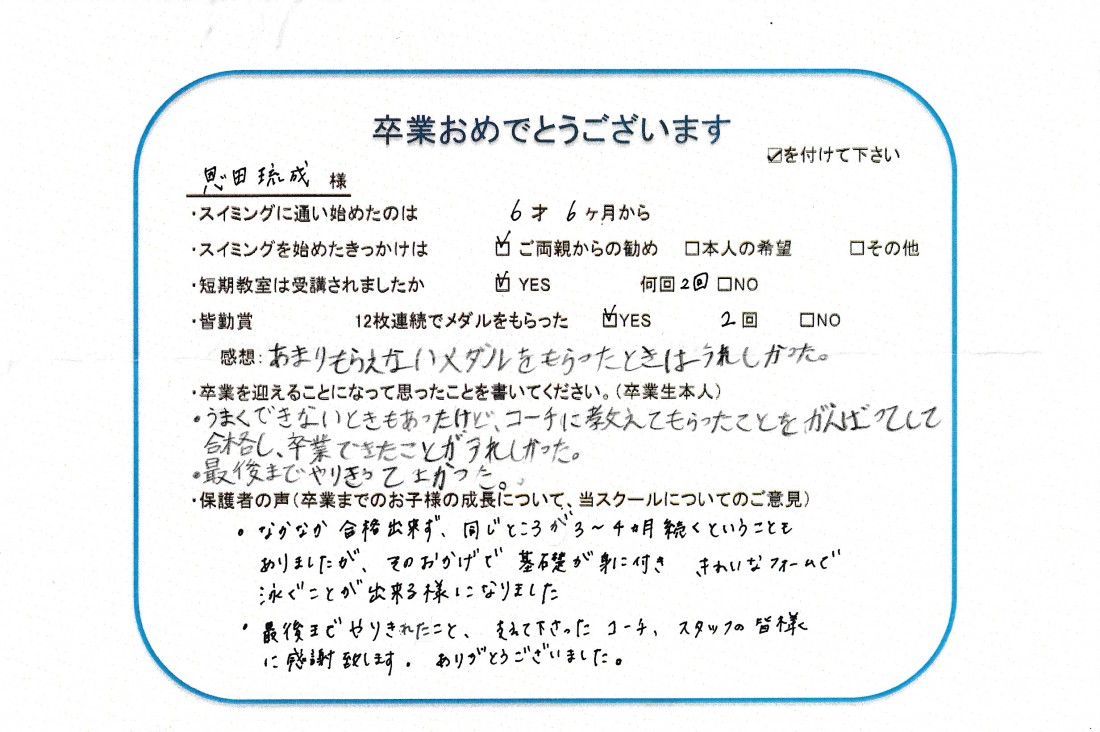 卒業おめでとうございます
☑を付けて下さい
恩田琉成 様
・スイミングに通い始めたのは 6才 6ヶ月から
・スイミングを始めたきっかけは ☑ ご両親からの勧め □本人の希望 □その他
・短期教室は受講されましたか ☑ YES 何回 2回 □NO
・皆勤賞 12枚連続でメダルをもらった ☑YES 2回 □NO
感想：あまりもらえないメダルをもらったときはうれしかった。
・卒業を迎えることになって思ったことを書いてください。（卒業生本人）
・うまくできないときもあったけど、コーチに教えてもらったことをがんばってして
合格し、卒業できたことがうれしかった。
・最後までやりきってよかった。
・保護者の声（卒業までのお子様の成長について、当スクールについてのご意見）
・なかなか合格出来ず、同じところが3～4ヵ月続くということも
ありましたが、そのおかげで 基礎が身に付き きれいなフォームで
泳ぐことが出来る様になりました
・最後までやりきれたこと、支えて下さった コーチ、スタッフの皆様
に感謝致します。ありがとうございました。